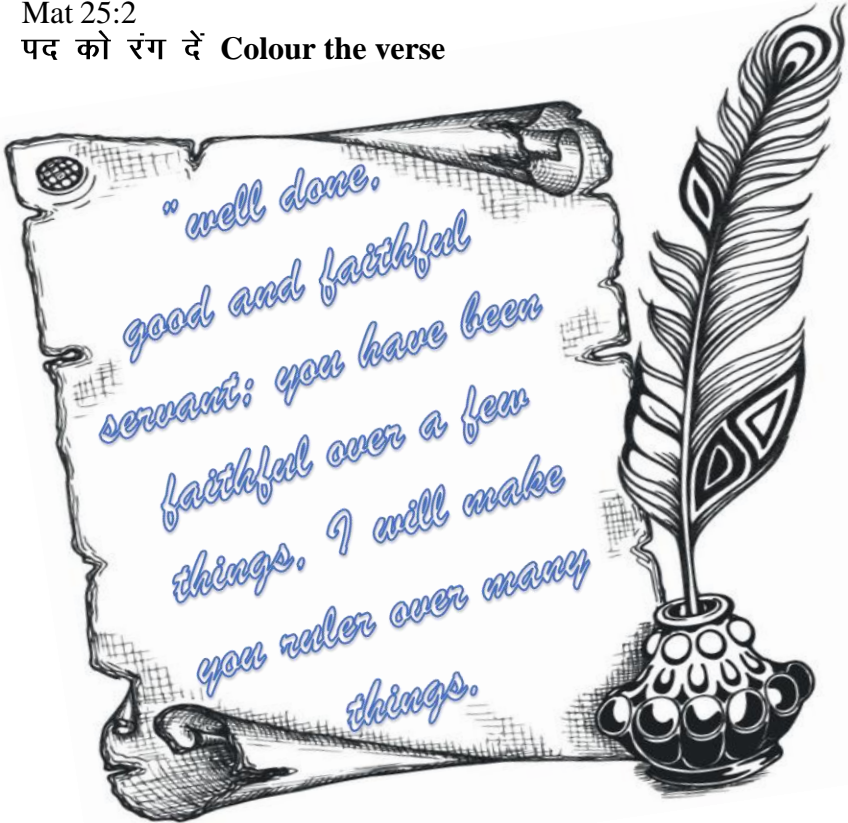 Mat 25:2
पद को रंग दें Colour the verse
"well done,
good and faithful
servant; you have been
faithful over a few
things, I will make
you ruler over many
things.